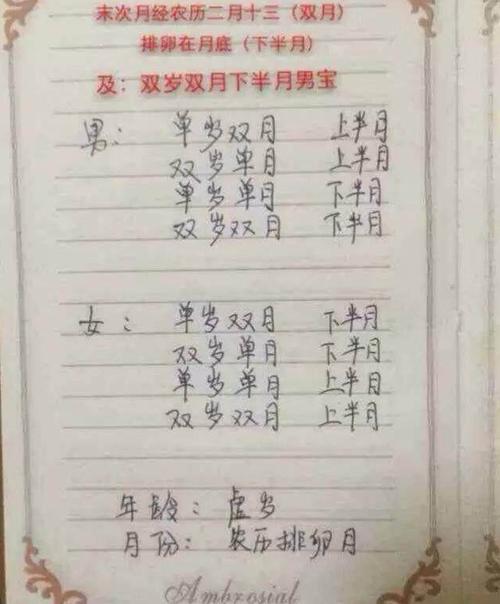 末次月经农历二月十三（双月）
排卵在月底（下半月）
及：双岁双月下半月男宝
男： 单岁双月 上半月
双岁单月 上半月
单岁单月 下半月
双岁双月 下半月
女： 单岁双月 下半月
双岁单月 下半月
单岁单月 上半月
双岁双月 上半月
年龄： 虚岁
月份： 农历排卵月
Ambrosial